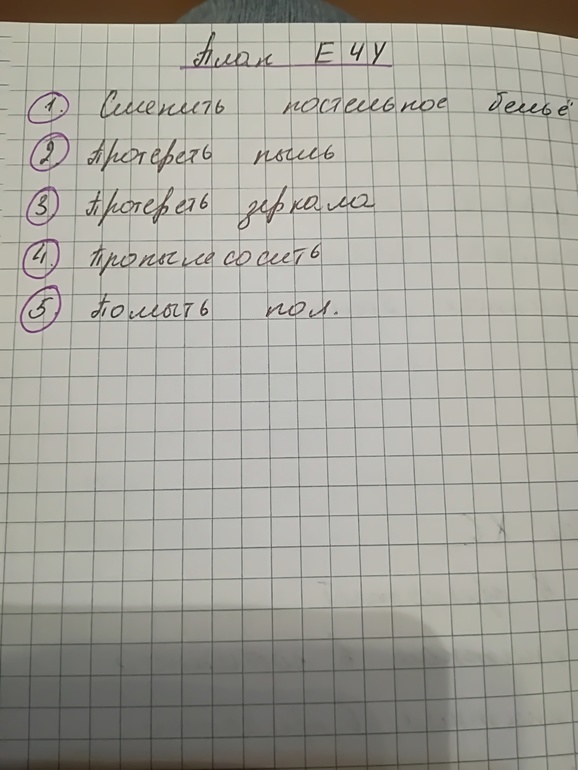 План ЕЧУ
1. Сменить постельное бельё
2 Протереть пыль
3 Протереть зеркала
4. Пропылесосить
5. Помыть пол.